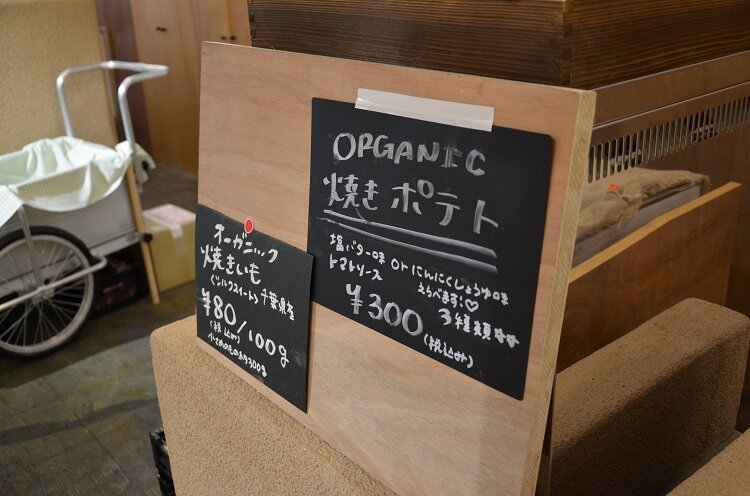 ORGANIC
焼きポテト
塩バター味 or にんにくしょうゆ味
トマトソース
えらべます♡
3種類
¥300
(税込み)
オーガニック
焼きいも
(シルクスイート)千葉県産
¥80/100g
(税込み)